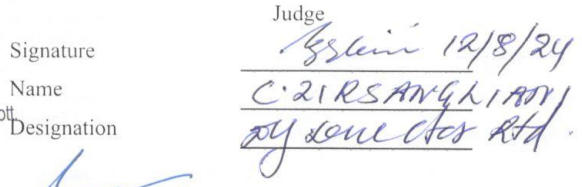 Judge
Signature 12/8/24
Name C. ZIRSANGLIANI
ott
Designation Dy Director Rtd.